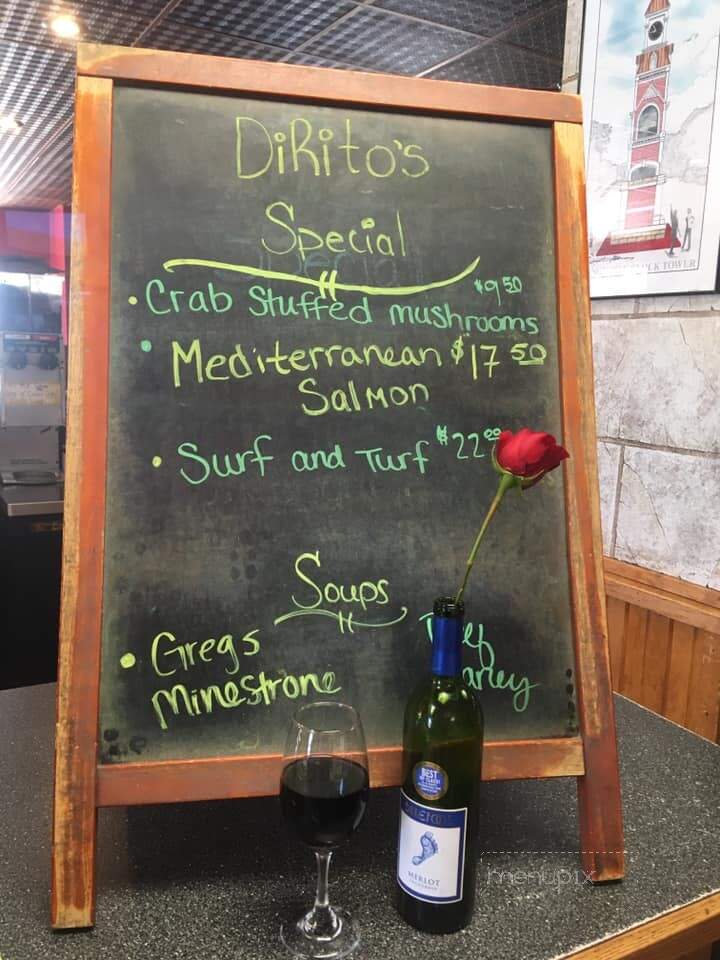 DiRito's
Special
• Crab Stuffed mushrooms $9.50
• Mediterranean $17.50
Salmon
• Surf and Turf $22.00
Soups
• Gregs
Minestrone
BEST
MERLOT
TOWER
menupix